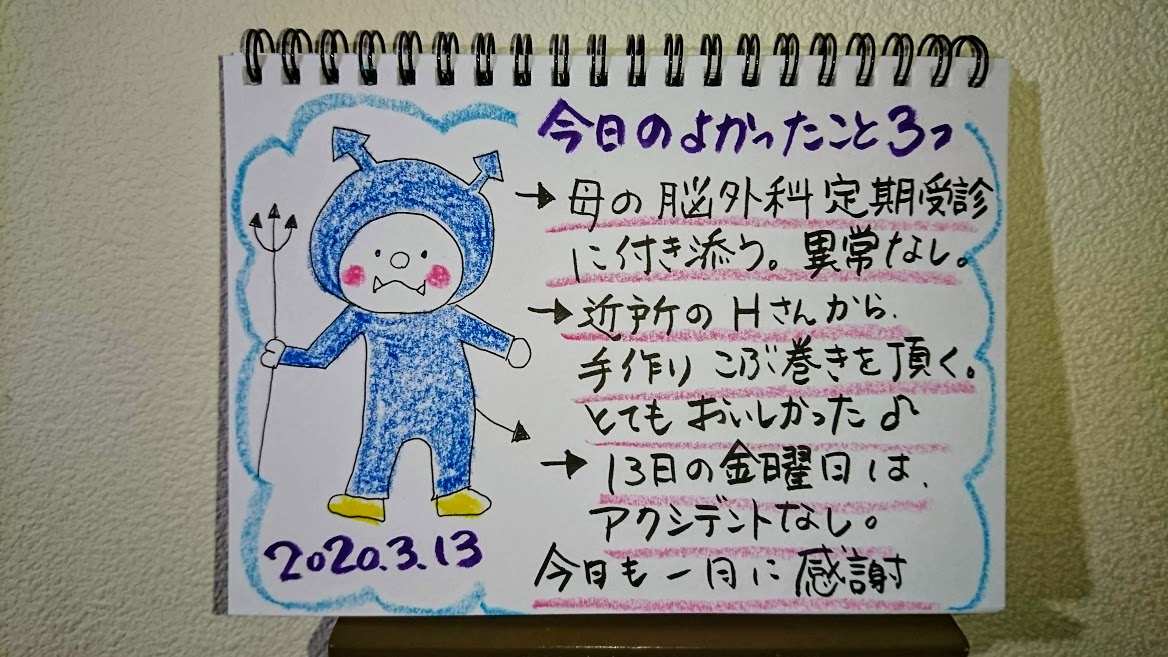 今日のよかったこと3つ
→母の脳外科定期受診
に付き添う。異常なし。
→近所のHさんから、
手作りこぶ巻きを頂く。
とてもおいしかった♪
→13日の金曜日は、
アクシデントなし。
今日も一日に感謝
2020.3.13